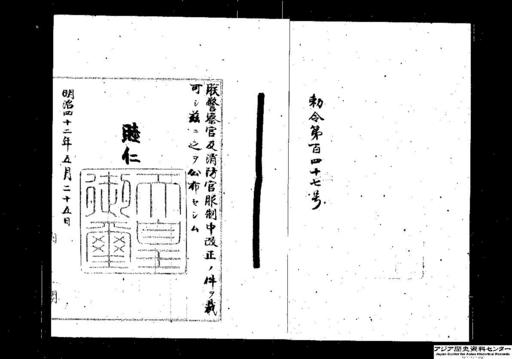 勅令第百四十七号
朕警察官及消防官服制中改正ノ件ヲ裁
可シ玆ニ之ヲ公布セシム
睦仁
天皇御璽
明治四十二年五月二十五日
アジア歴史資料センター
Japan Center for Asian Historical Records